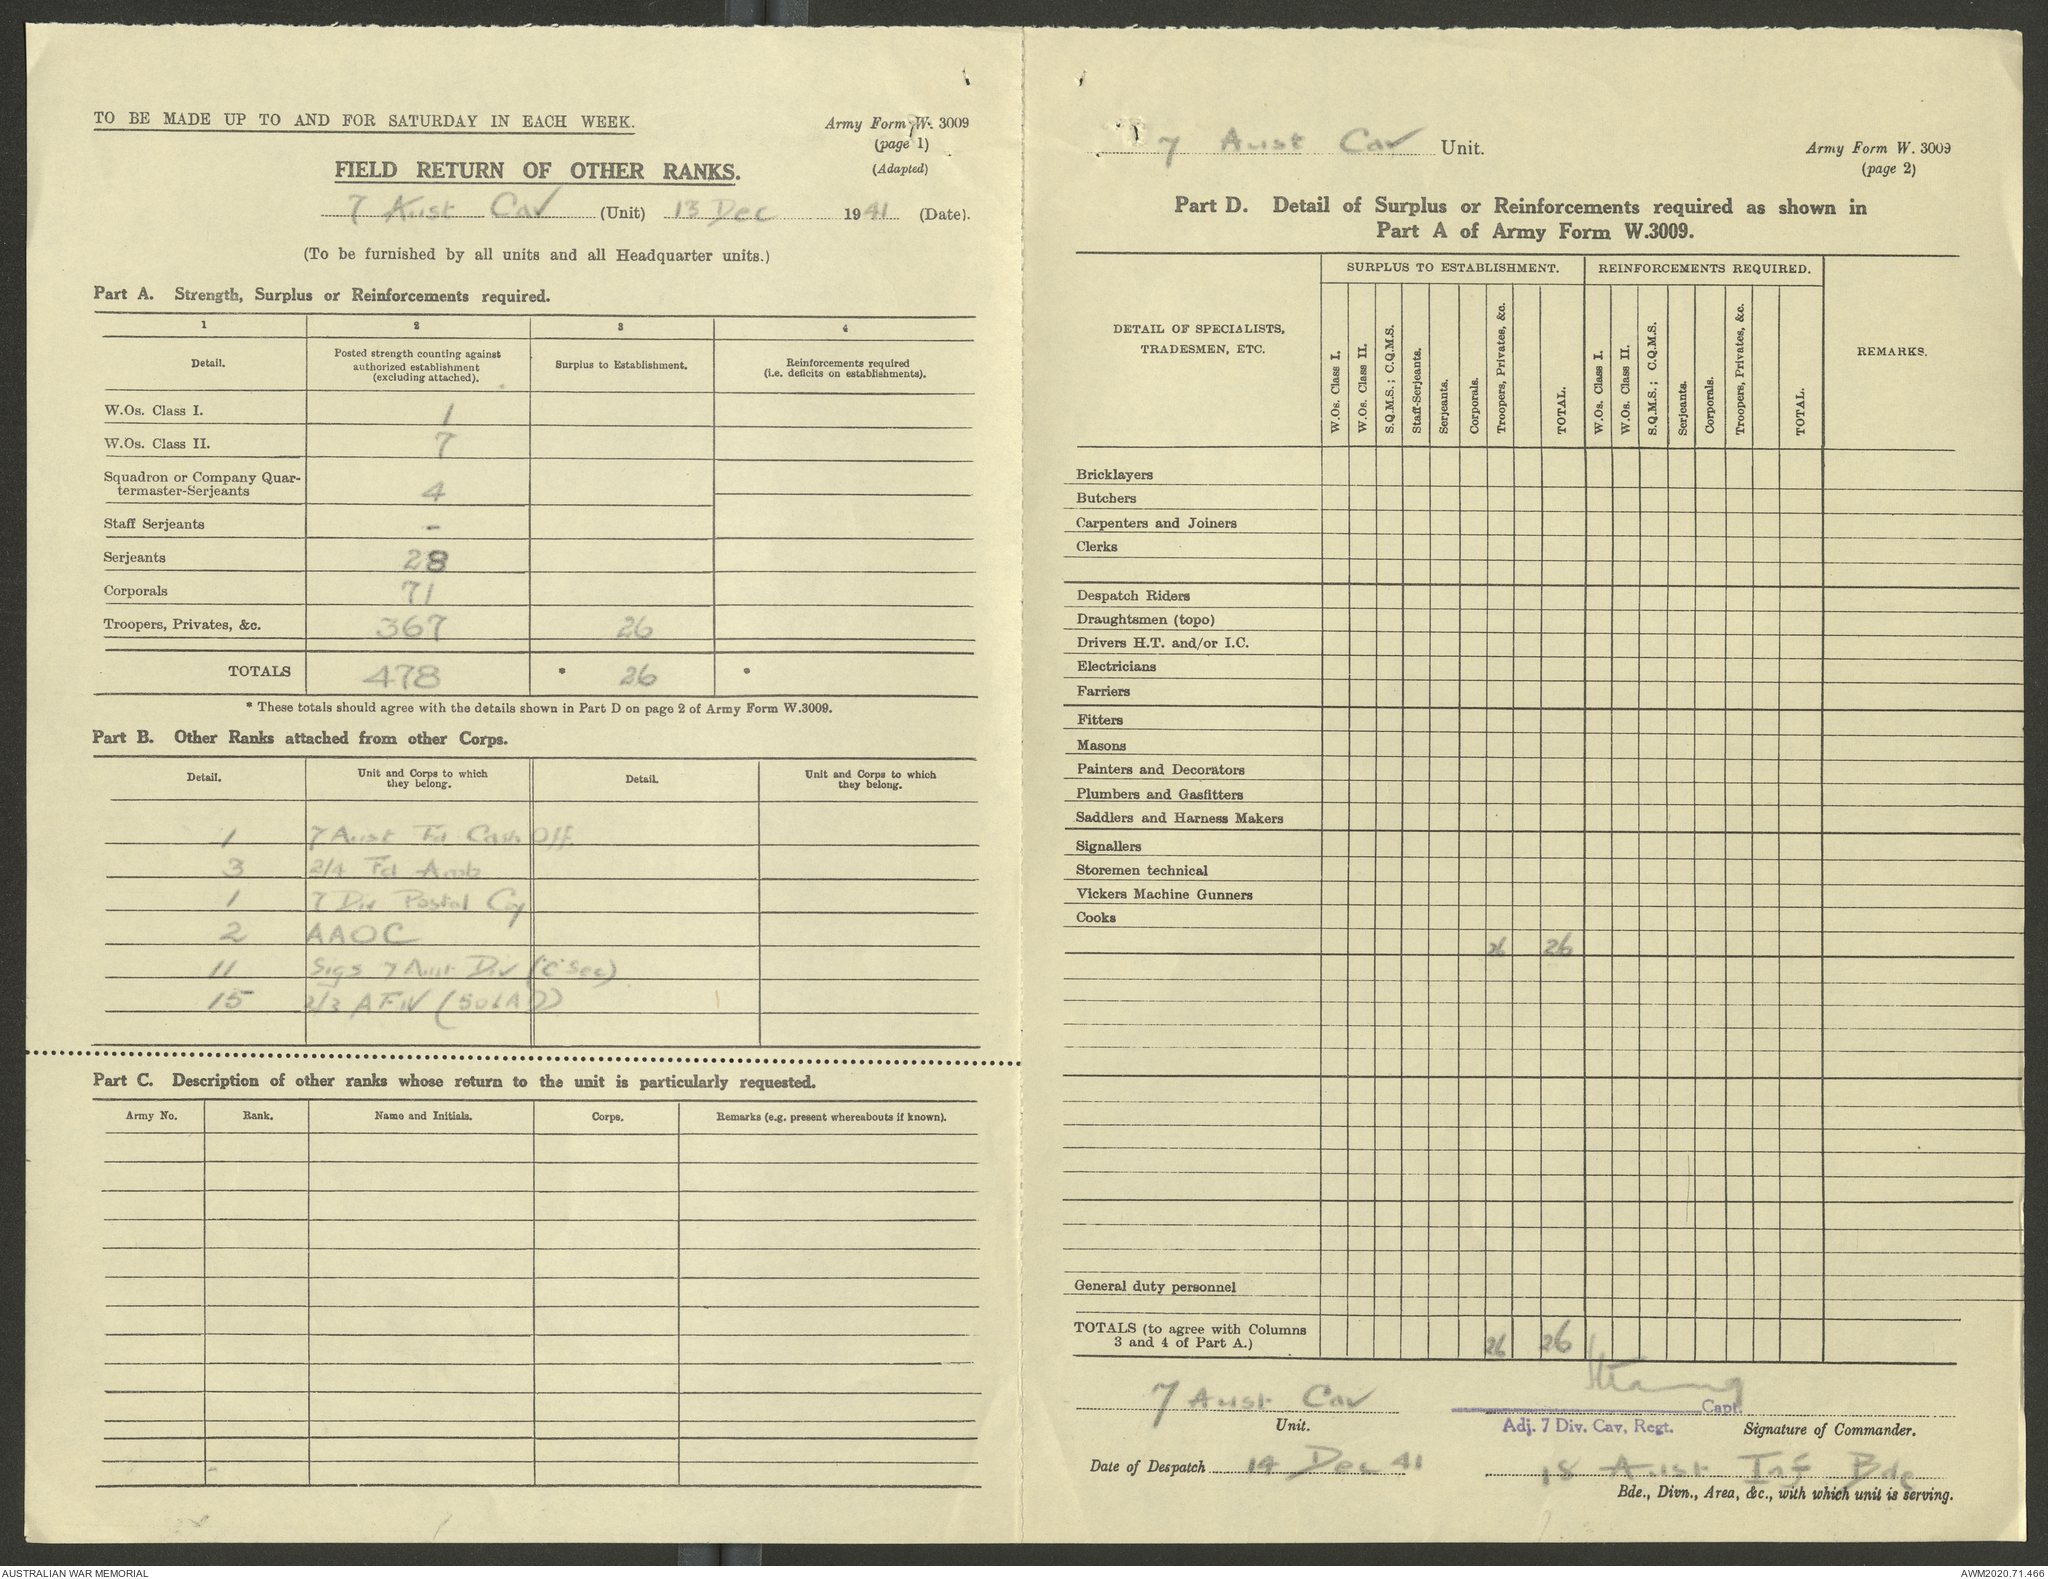 TO BE MADE UP TO AND FOR SATURDAY IN EACH WEEK.
Army Form W. 3009
(page 1)
(Adapted)
FIELD RETURN OF OTHER RANKS.
7 Aust Cav (Unit) 13 Dec 1941 (Date).
(To be furnished by all units and all Headquarter units.)
Part A. Strength, Surplus or Reinforcements required.
1 2 3 4
Detail. Posted strength counting against authorized establishment (excluding attached). Surplus to Establishment. Reinforcements required (i.e. deficits on establishments).
W.Os. Class I. 1
W.Os. Class II. 7
Squadron or Company Quar-
termaster-Serjeants 4
Staff Serjeants -
Serjeants 28
Corporals 71
Troopers, Privates, &c. 367 26
TOTALS 478 * 26 *
* These totals should agree with the details shown in Part D on page 2 of Army Form W.3009.
Part B. Other Ranks attached from other Corps.
Detail. Unit and Corps to which they belong. Detail. Unit and Corps to which they belong.
1 7 Aust Fd Cash Off.
3 2/4 Fd Amb
1 7 Div Postal Coy
2 AAOC
11 Sigs 7 Aust Div ("C" Sec)
15 AFW
Part C. Description of other ranks whose return to the unit is particularly requested.
Army No. Rank. Name and Initials. Corps. Remarks (e.g. present whereabouts if known).
7 Aust Cav Unit.
Army Form W. 3009
(page 2)
Part D. Detail of Surplus or Reinforcements required as shown in
Part A of Army Form W.3009.
SURPLUS TO ESTABLISHMENT. REINFORCEMENTS REQUIRED.
DETAIL OF SPECIALISTS,
TRADESMEN, ETC.
W.Os. Class I.
W.Os. Class II.
S.Q.M.S.; C.Q.M.S.
Staff-Serjeants.
Serjeants.
Corporals.
Troopers, Privates, &c.
TOTAL.
W.Os. Class I.
W.Os. Class II.
S.Q.M.S.; C.Q.M.S.
Serjeants.
Corporals.
Troopers, Privates, &c.
TOTAL.
REMARKS.
Bricklayers
Butchers
Carpenters and Joiners
Clerks
Despatch Riders
Draughtsmen (topo)
Drivers H.T. and/or I.C.
Electricians
Farriers
Fitters
Masons
Painters and Decorators
Plumbers and Gasfitters
Saddlers and Harness Makers
Signallers
Storemen technical
Vickers Machine Gunners
Cooks
26 26
General duty personnel
TOTALS (to agree with Columns
3 and 4 of Part A.) 26 26
7 Aust Cav Capt.
Unit. Adj. 7 Div. Cav. Regt. Signature of Commander.
Date of Despatch 14 Dec 41 18 Aust Inf Bde
Bde., Divn., Area, &c., with which unit is serving.
AUSTRALIAN WAR MEMORIAL
AWM2020.71.466